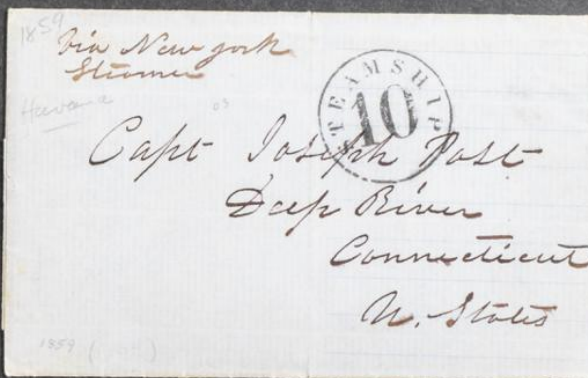 1859
Via New york
Steamer
Havana
03
STEAMSHIP
10
Capt Joseph Post
Deep River
Connecticut
U. States
1859